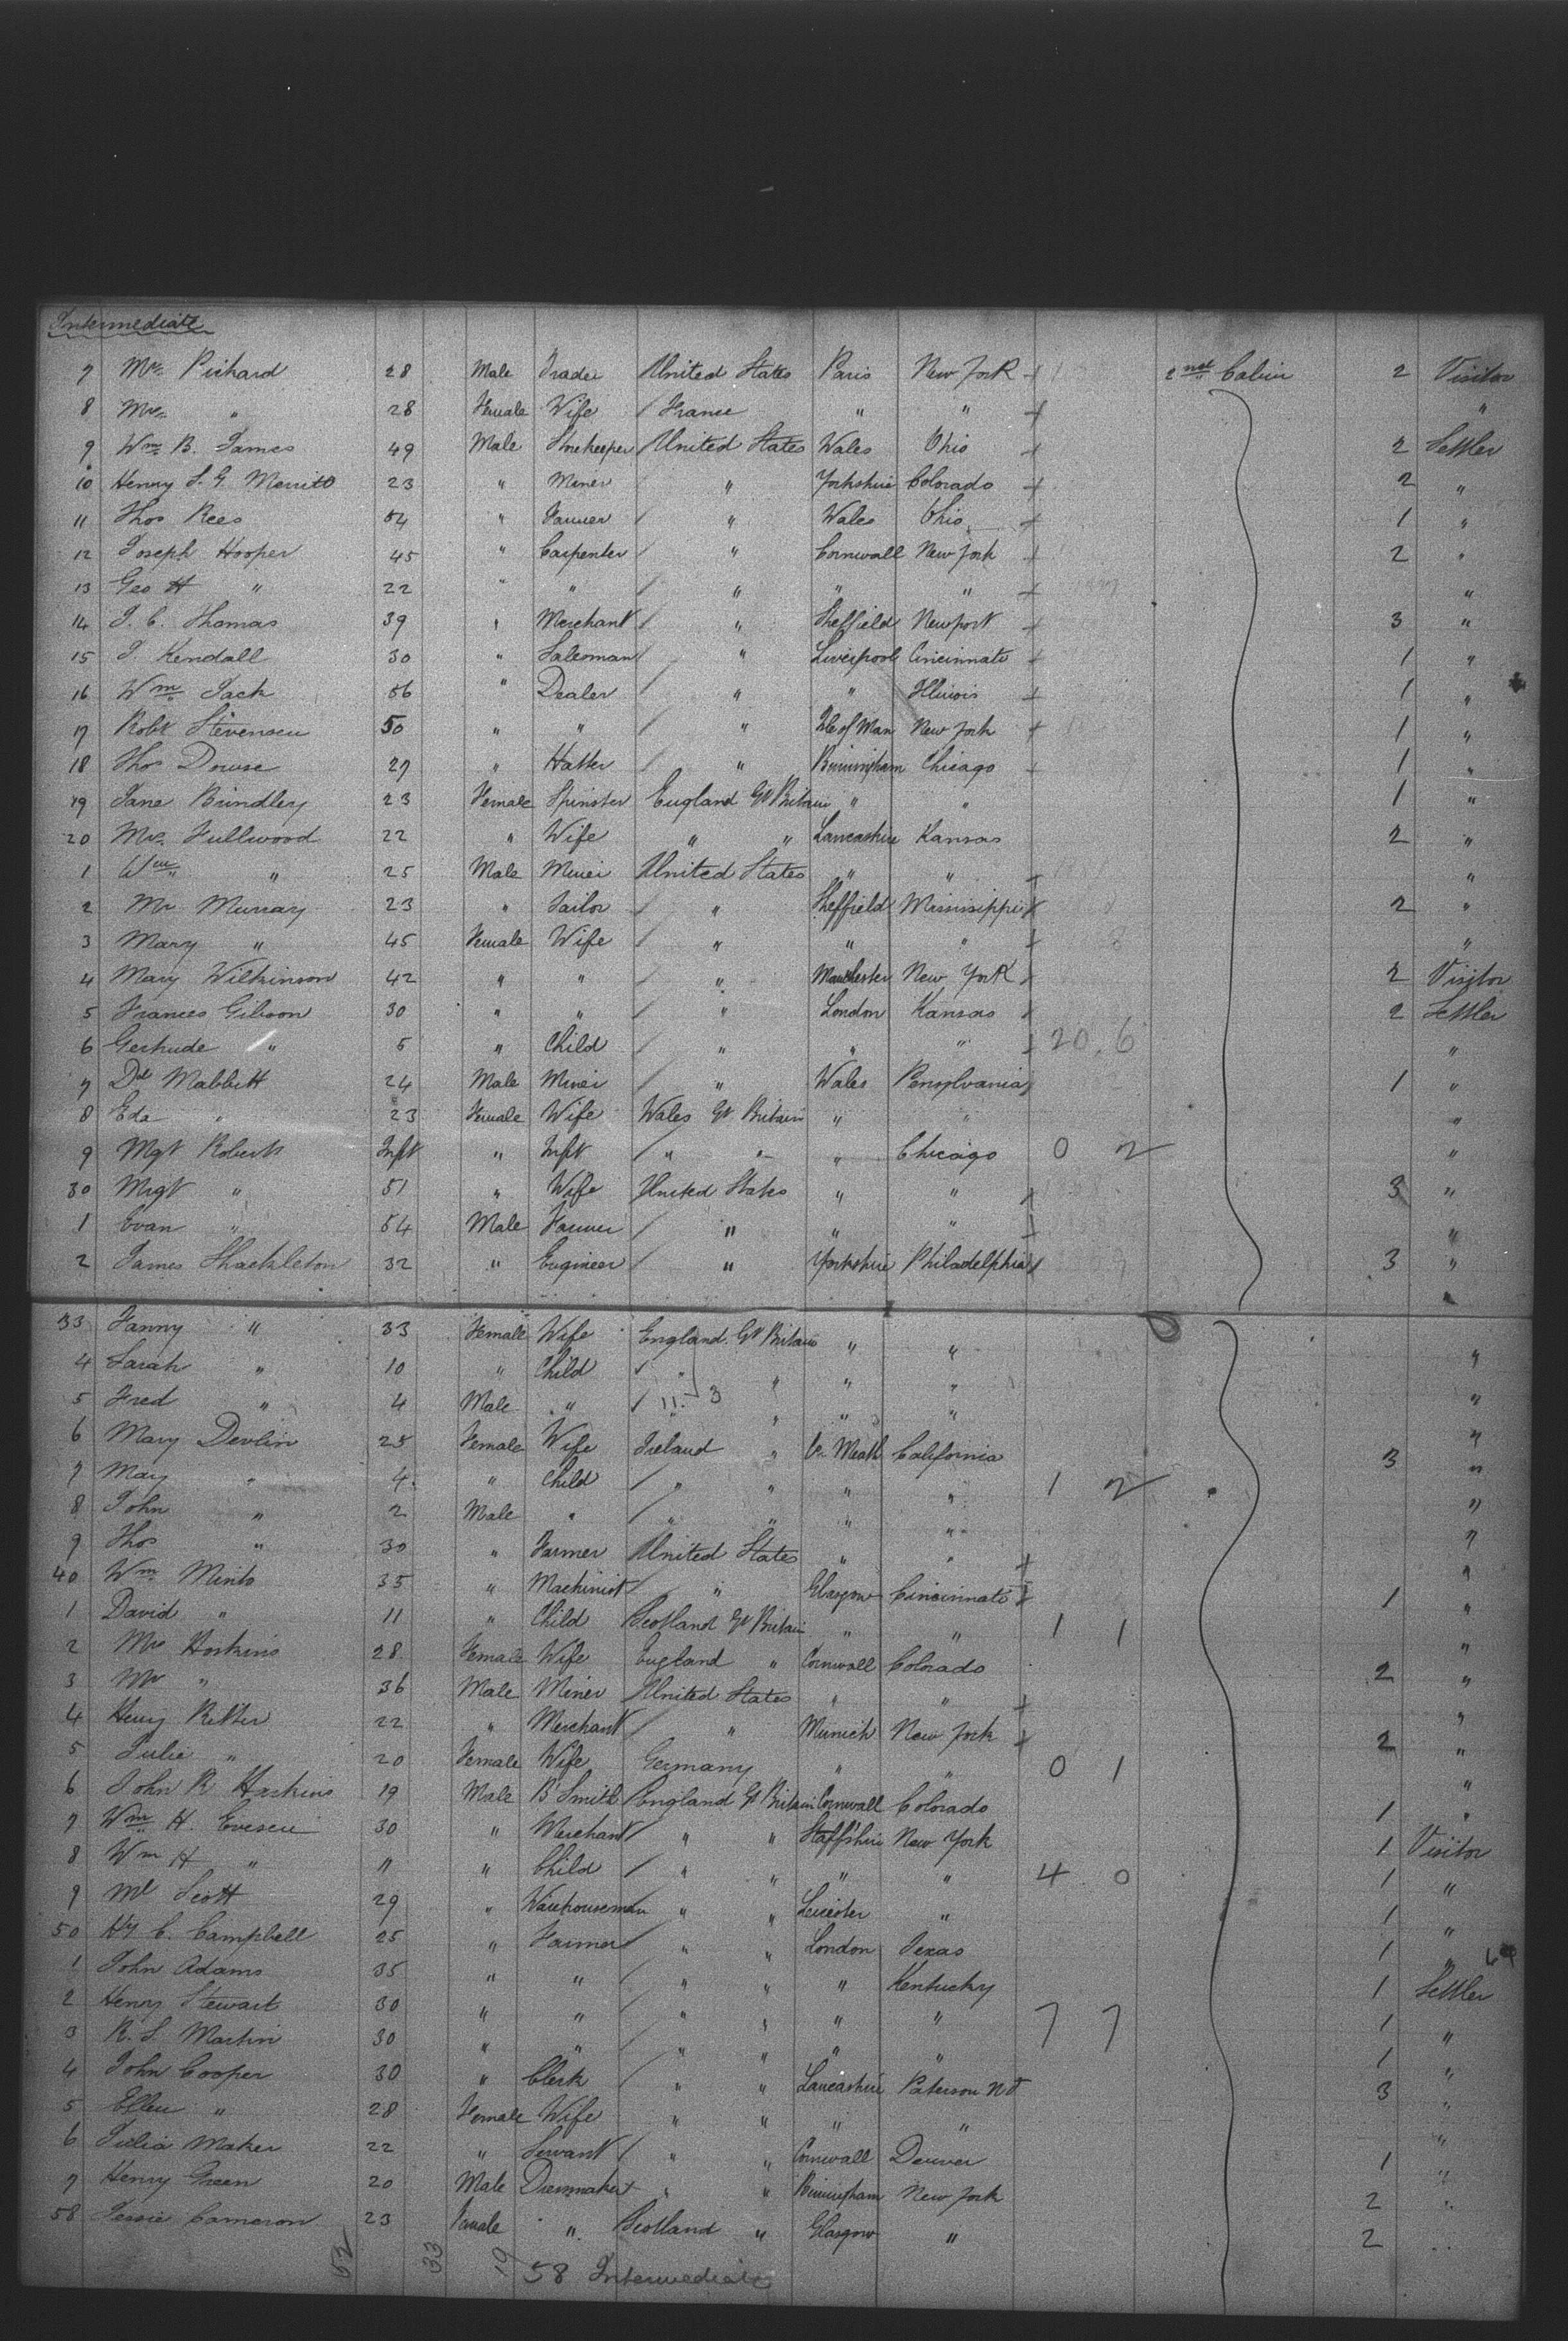 Intermediate
7 Mr. Pichard 28 Male Trader United States Paris New York + 2nd Cabin 2 Visitor
8 Mrs. " 28 Female Wife / France " " + "
9 Wm. B. James 49 Male Storekeeper United States Wales Ohio + 2 Settler
10 Henry S. G. Merritt 23 " Miner " Yorkshire Colorado + 2 "
11 Thos Rees 54 " Farmer / " Wales Ohio + 1 "
12 Joseph Hooper 45 " Carpenter / " Cornwall New York + 2 "
13 Geo H " 22 " " / " " " + "
14 J. C. Thomas 39 " Merchant / " Sheffield Newport + 3 "
15 J Kendall 30 " Salesman / " Liverpool Cincinnati + 1 "
16 Wm. Jack 56 " Dealer / " " Illinois + 1 "
17 Robt Stevenson 50 " " / " Isle of Man New York + 1 "
18 Thos Dowse 27 " Hatter / " Birmingham Chicago + 1 "
19 Jane Brindley 23 Female Spinster England Gt Britain " " 1 "
20 Mrs. Fullwood 22 " Wife " " Lancashire Kansas 2 "
1 Wm " 25 Male Miner United States " " + "
2 Mr Murray 23 " Tailor / " Sheffield Mississippi + 2 "
3 Mary " 45 Female Wife / " " " + 8 "
4 Mary Wilkinson 42 " " / " Manchester New York + 2 Visitor
5 Frances Gibson 30 " " / " London Kansas + 2 Settler
6 Gertrude " 5 " Child / " " " + 20. 6 "
7 Dd Mabbitt 24 Male Miner / " Wales Pensylvania + 1 "
8 Eda " 23 Female Wife Wales Gt Britain " " "
9 Mgt Roberts Inft " Inft / " " " Chicago 0 2 "
30 Mrgt " 51 " Wife United States " " + 3 "
1 Evan " 54 Male Farmer / " " " + "
2 James Shackleton 32 " Engineer / " Yorkshire Philadelphia + 3 "
33 Fanny " 33 Female Wife England Gt Britain " " "
4 Sarah " 10 " Child / " " " " "
5 Fred " 4 Male " / 11. 3 " " " "
6 Mary Devlin 25 Female Wife Ireland " Co. Meath California 3 "
7 May " 4 " Child / " " " " 1 2 "
8 John " 2 Male " / " " " " "
9 Thos " 30 " Farmer United States " " + "
40 Wm. Minto 35 " Machinist / " Glasgow Cincinnati + 1 "
1 David " 11 " Child Scotland Gt Britain " " 1 1 "
2 Mrs Hoskins 28 Female Wife England " Cornwall Colorado 2 "
3 Mr " 36 Male Miner United States " " + "
4 Henry Ritter 22 " Merchant / " Munich New York + 2 "
5 Julie " 20 Female Wife Germany " " 0 1 "
6 John R Haskins 19 Male B'Smith England Gt Britain Cornwall Colorado 1 "
7 Wm. H. 30 " Merchant / " " Staff'shire New York 1 Visitor
8 Wm H " 11 " Child / " " " " 4 0 1 "
9 Ml Scott 29 " Warehouseman " " Leicester " 1 "
50 Hy C. Campbell 25 " Farmer / " " London Texas 1 "
1 John Adams 35 " " / " " " Kentucky 1 Settler
2 Henry Stewart 30 " " / " " " " 7 7 1 "
3 R. S. Martin 30 " " / " " " " 1 "
4 John Cooper 30 " Clerk / " " Lancashire Paterson NJ 3 "
5 Ellen " 28 Female Wife " " " " "
6 Julia Maker 22 " Servant / " " Cornwall Denver 1 "
7 Henry Green 20 Male Dressmaker " " Birmingham New York 2 "
58 Jessie Cameron 23 Female " Scotland " Glasgow " 2 "
52 33 19 58 Intermediate